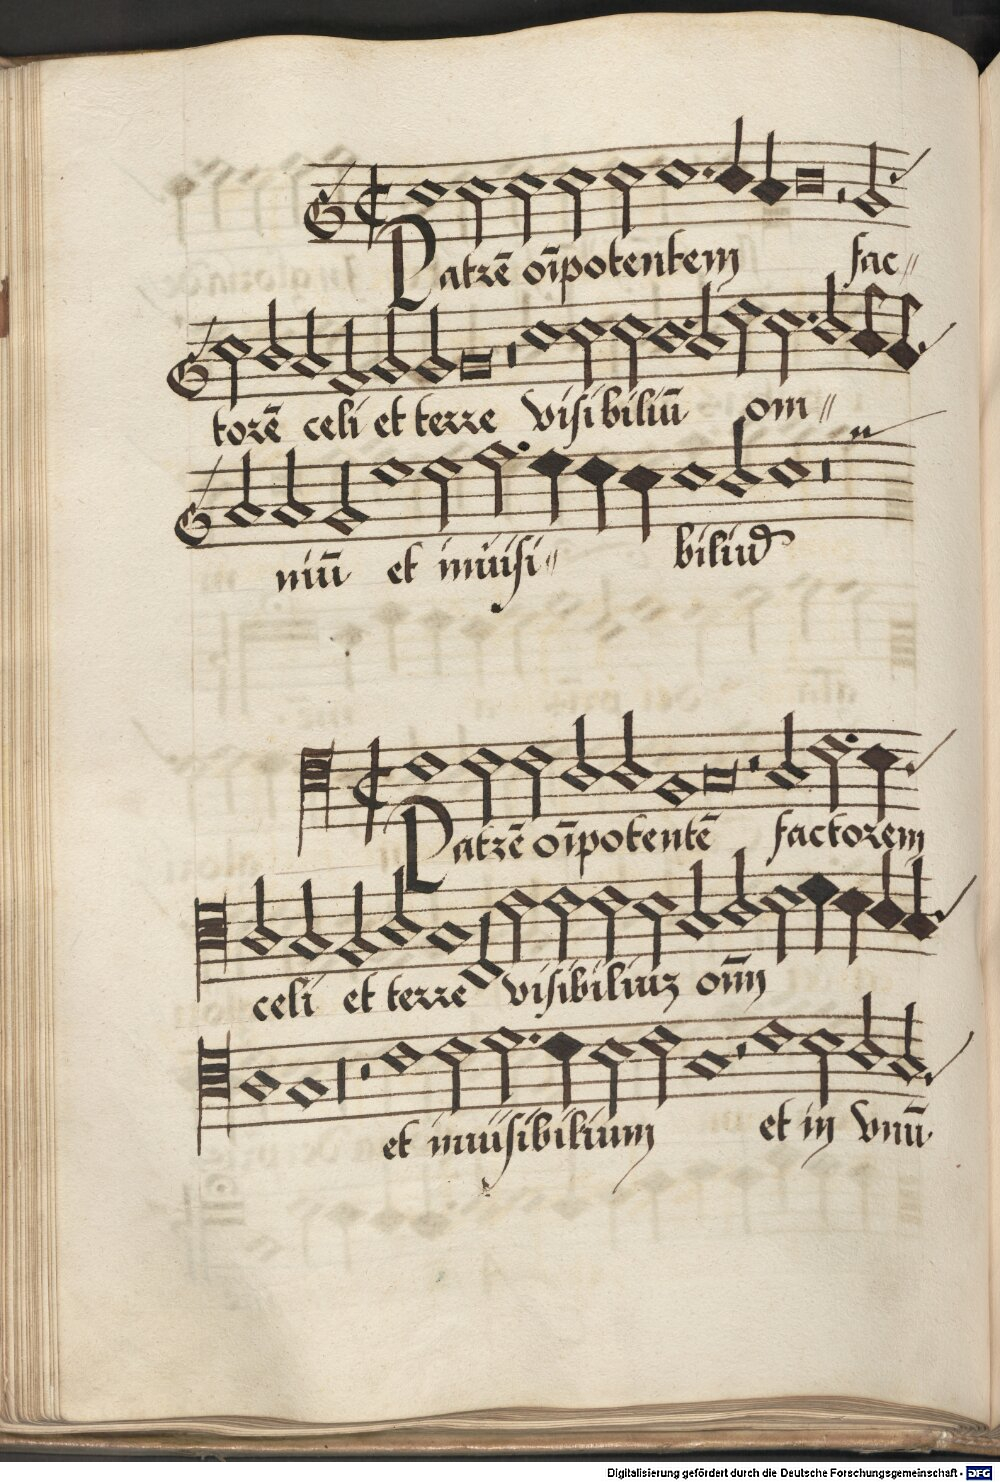 Patrē oīpotentem fac//
torē celi et terre visibiliū om//
niū et inuisi// biliū
Patrē oīpotentē factorem
celi et terre visibiliuz oīm
et inuisibilium et in vnū
Digitalisierung gefördert durch die Deutsche Forschungsgemeinschaft - DFG